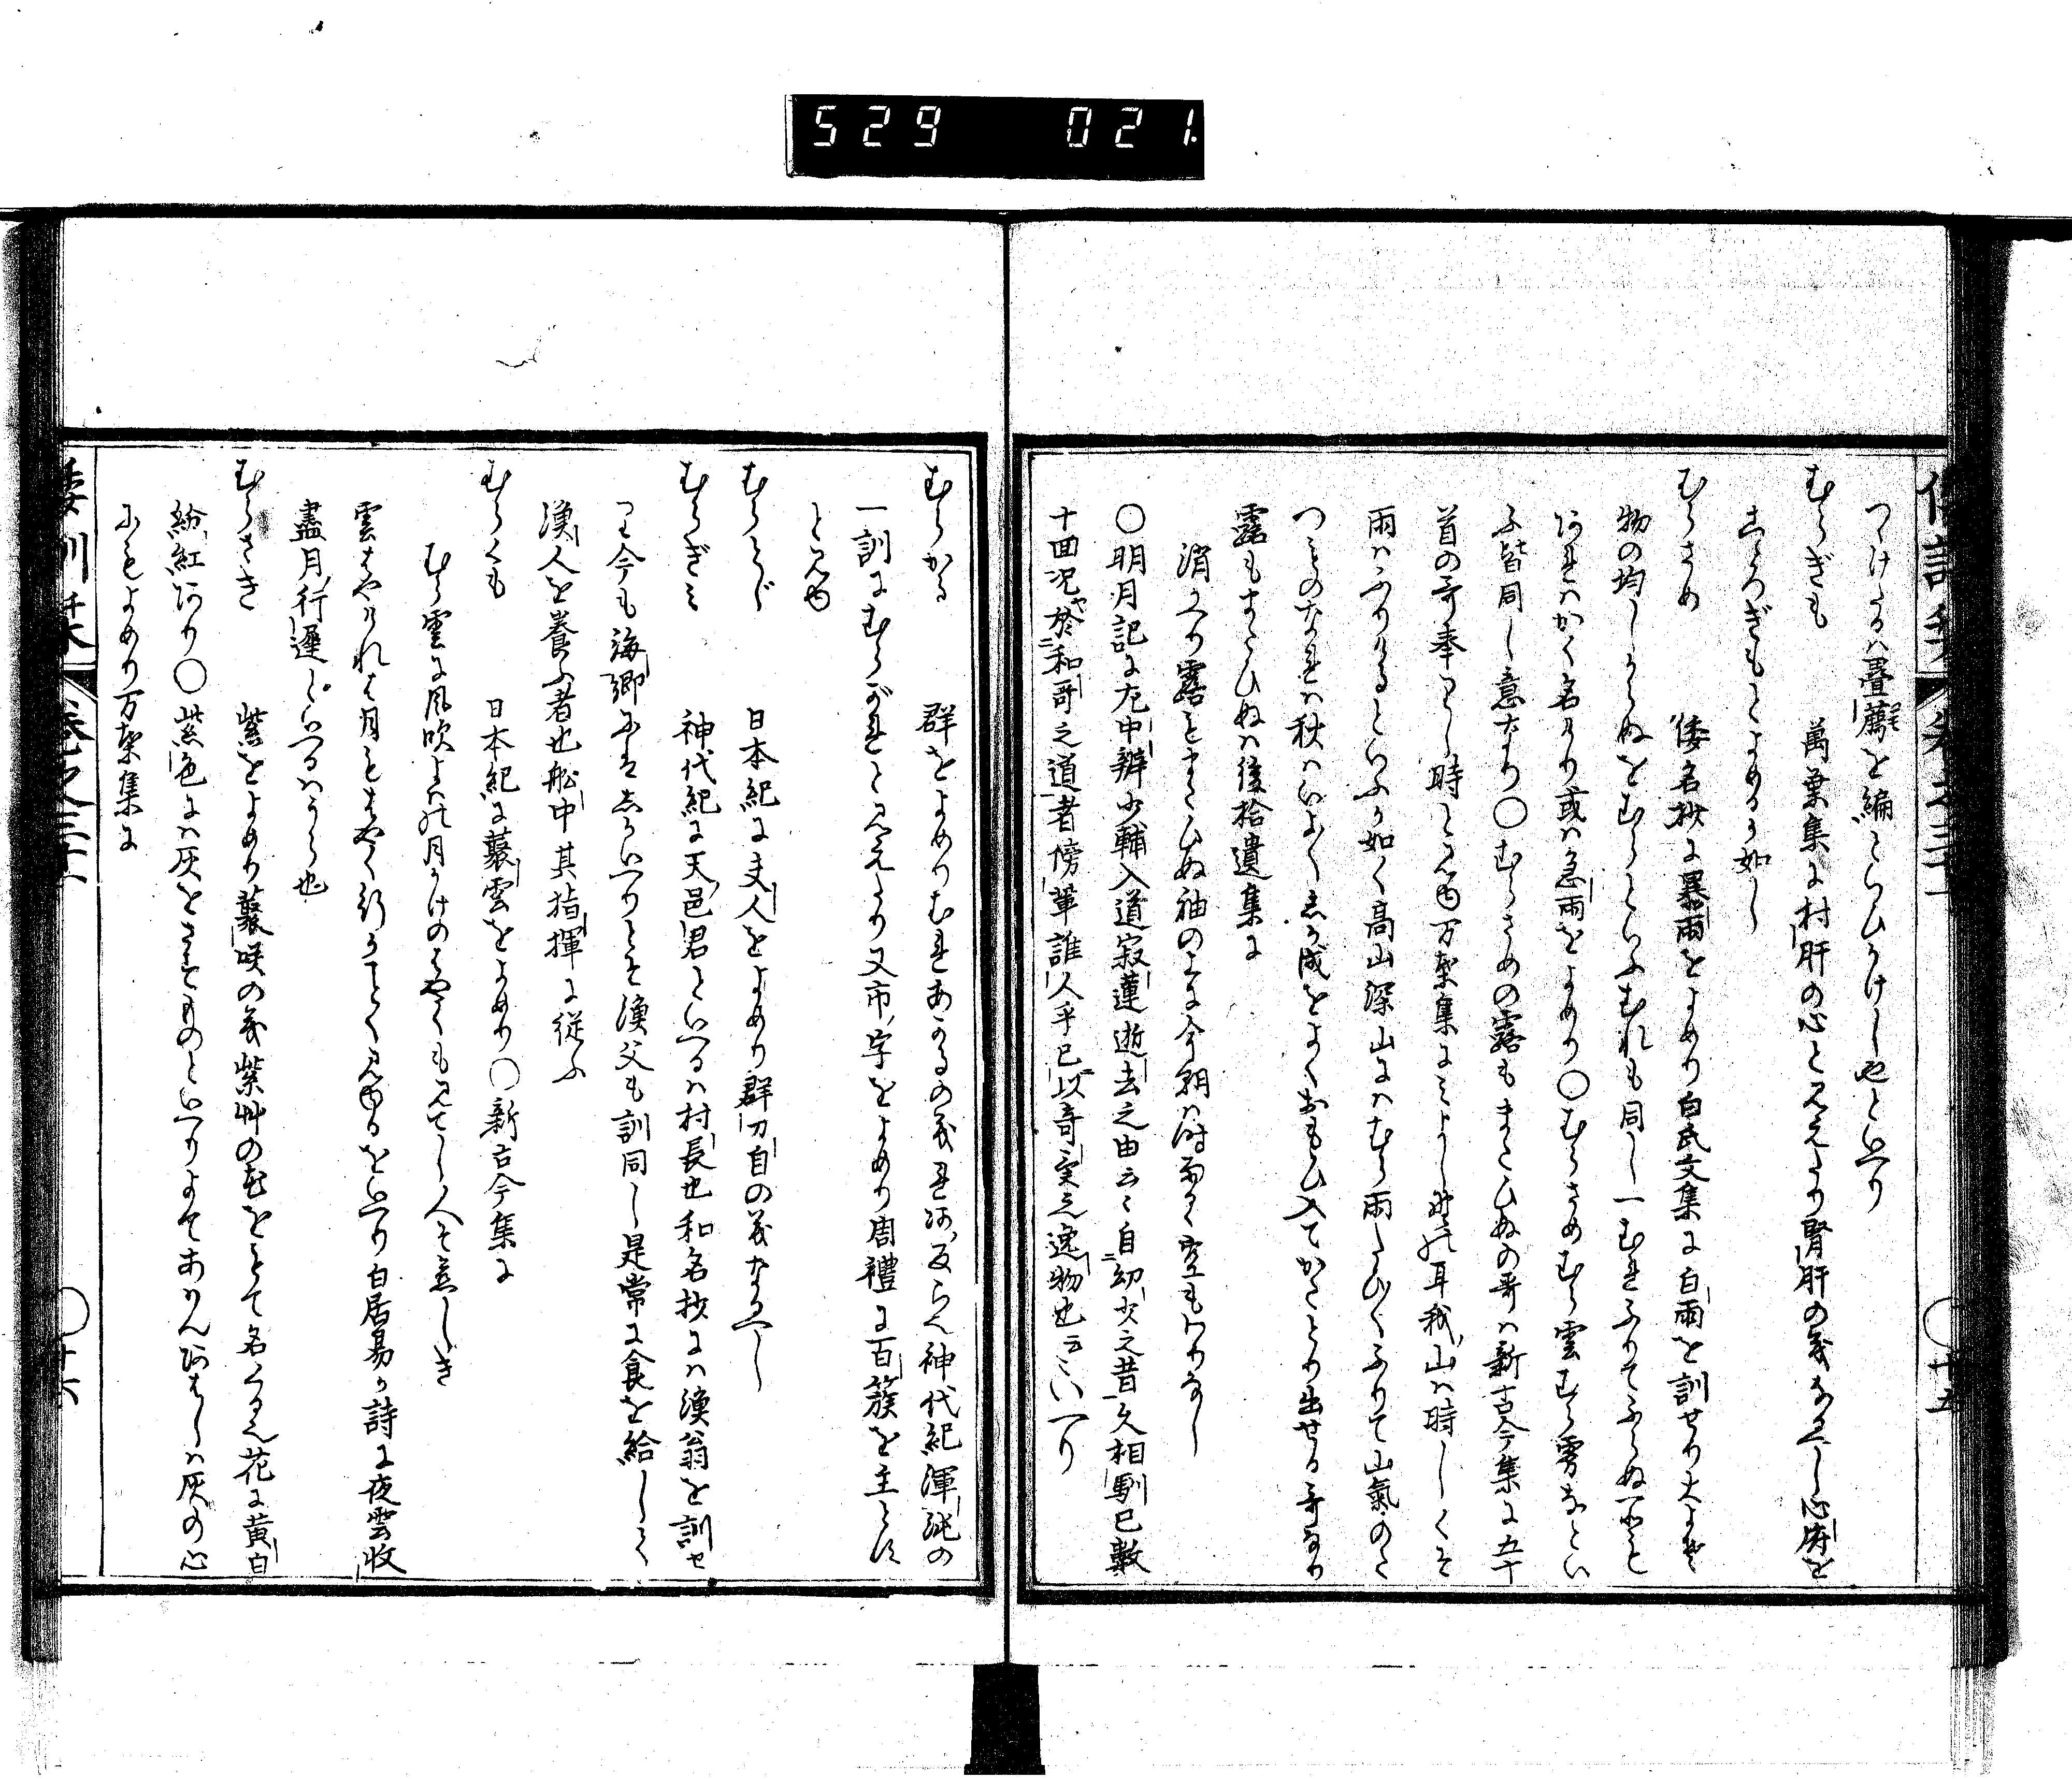 529 021
つけたるハ畳薦を編とらひかけしやといへり
むらぎも 萬葉集に村肝の心と見えたり腎肝の義なるへし心府を
こゝろぎもとよめるか如し
むらさめ 倭名抄に暴雨をよめり白氏文集に白雨を訓せり大よそ
物の均しからぬをむらといふむれも同し一むれふりてふらぬ所も
あれハかく名けり或ハ急雨をよめり○むらさめむら雲むら霧なとい
ふ皆同し意なり○むらさめの露もまたひぬの哥ハ新古今集に五十
首の哥奉りし時と見ゆ万葉集にみよし野の耳我山ハ時しくそ
雨ハふりけるといふか如く高山深山にハむら雨たひ〳〵ふりて山氣のた
つものなれハ秋ハいよ〳〵しか成をよくおもひ入てかたとり出せる哥なり
露もまたひぬハ後拾遺集に
消かへり露もまたひぬ袖の上に今朝ハ時雨る空もわりなし
○明月記に左中辨少輔入道寂蓮逝去之由云々自幼少之昔久相馴已數
十回况於和哥之道者傍輩誰人乎已以奇異之逸物也云々いへり
むらかる 群をよめりむれあかるの義れあ反ら也神代紀渾沌の
一訓にむらがれと見えたり又市字をよめり周禮に百簇を主とす
と見ゆ
むらとじ 日本紀に夫人をよめり群刀自の義なるへし
むらぎみ 神代紀に天邑君といへるハ村長也和名抄にハ漁翁を訓せ
り今も海郷にてしかいへりとそ漁父も訓同し是常に食を給して
漁人を養ふ者也舩中其指揮に従ふ
むらくも 日本紀に叢雲をよめり○新古今集に
むら雲に風吹よハの月かけのはやくも見てし人そ恋しき
雲はやけれは月もはやく行かことく見ゆるをいへり白居易か詩に夜雲收
盡月行遲といへるハうら也
むらさき 紫をよめり叢咲の義紫艸の花をもて名くる也花に黄白
紛紅あり○紫色にハ灰をさすものといへりよてあかんあはしハ灰の心
にもよめり万葉集に